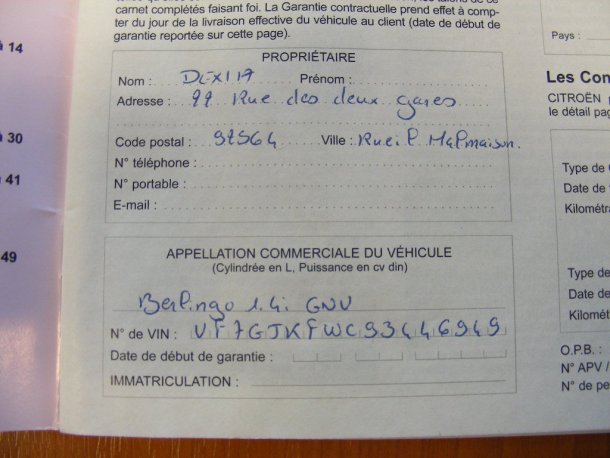 carnet complétés faisant foi. La Garantie contractuelle prend effet à comp-
ter du jour de la livraison effective du véhicule au client (date de début de
garantie reportée sur cette page).
à 14
à 30
à 41
49
PROPRIÉTAIRE
Nom : Prénom :
Adresse : 22 Rue des deux gares
Code postal : 92564 Ville : Rueil Malmaison.
N° téléphone :
N° portable :
E-mail :
APPELLATION COMMERCIALE DU VÉHICULE
(Cylindrée en L, Puissance en cv din)
Berlingo 1.4i GNV
N° de VIN : VF7GJKFWC93446949
Date de début de garantie :
IMMATRICULATION :
Pays :
Les Con
CITROËN
le détail pag
Type de
Date de
Kilométra
Type de
Date de
Kilomét
O.P.B. :
N° APV /
N° de pe